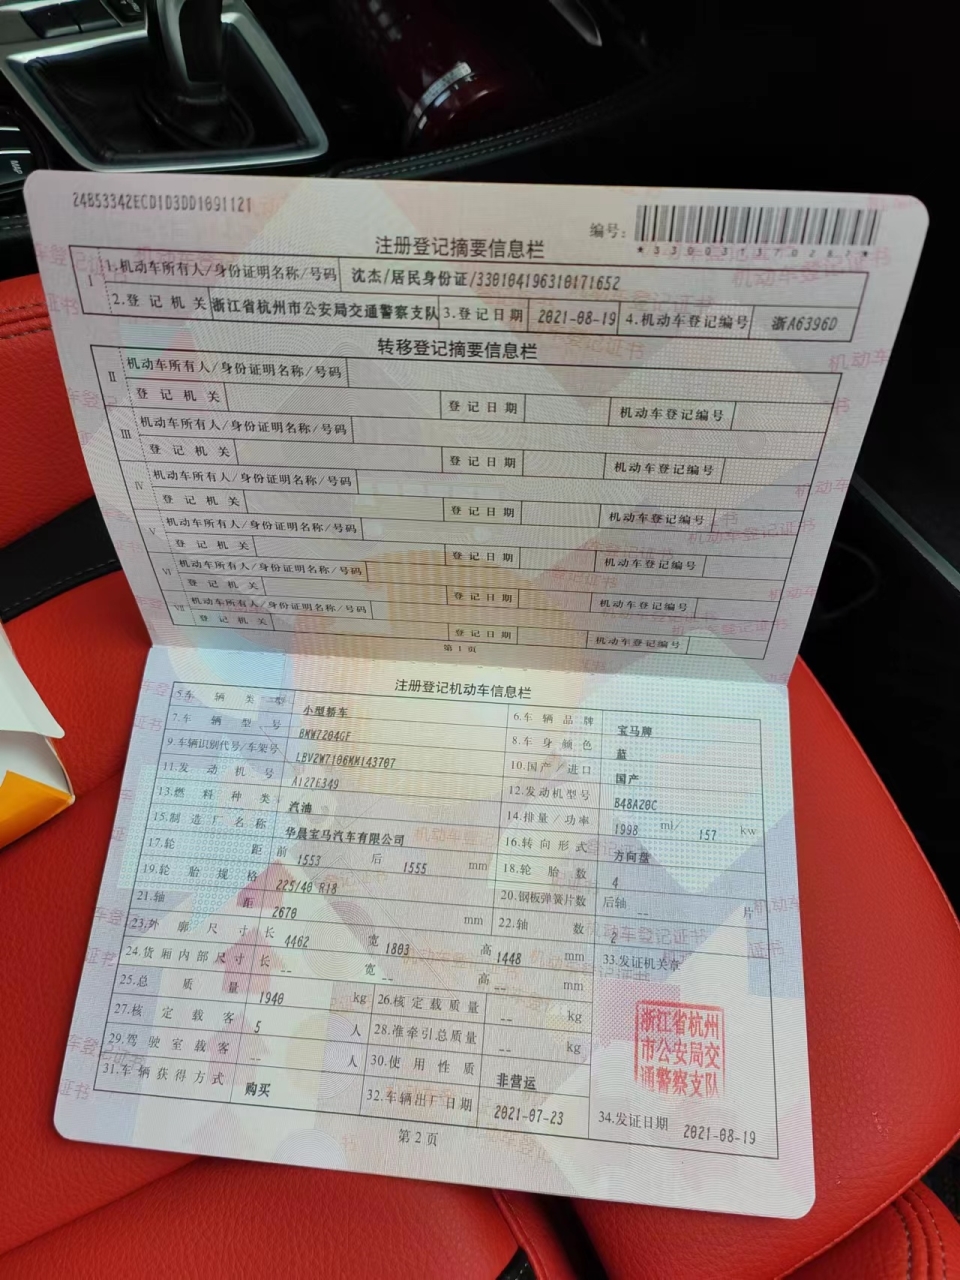 24B53342ECD1D3DD1091121
编号:
注册登记摘要信息栏
I 1.机动车所有人/身份证明名称/号码 沈杰/居民身份证/330104196310171652
2.登记机关 浙江省杭州市公安局交通警察支队 3.登记日期 2021-08-19 4.机动车登记编号 浙A6396D
转移登记摘要信息栏
II 机动车所有人/身份证明名称/号码
登记机关 登记日期 机动车登记编号
III 机动车所有人/身份证明名称/号码
登记机关 登记日期 机动车登记编号
IV 机动车所有人/身份证明名称/号码
登记机关 登记日期 机动车登记编号
V 机动车所有人/身份证明名称/号码
登记机关 登记日期 机动车登记编号
VI 机动车所有人/身份证明名称/号码
登记机关 登记日期 机动车登记编号
VII 机动车所有人/身份证明名称/号码
登记机关 登记日期 机动车登记编号
第1页
注册登记机动车信息栏
5.车辆类型 小型轿车 6.车辆品牌 宝马牌
7.车辆型号 BMW7204GF 8.车身颜色 蓝
9.车辆识别代号/车架号 LBV2W7106MM143707 10.国产/进口 国产
11.发动机号 A127E349 12.发动机型号 B48A20C
13.燃料种类 汽油 14.排量/功率 1998 ml/ 157 kw
15.制造厂名称 华晨宝马汽车有限公司 16.转向形式 方向盘
17.轮距 前 1553 后 1555 mm 18.轮胎数 4
19.轮胎规格 225/40 R18 20.钢板弹簧片数 后轴 -- 片
21.轴距 2670 mm 22.轴数 2
23.外廓尺寸 长 4462 宽 1803 高 1448 mm 33.发证机关章
24.货厢内部尺寸 长 -- 宽 -- 高 -- mm
25.总质量 1940 kg 26.核定载质量 -- kg
27.核定载客 5 人 28.准牵引总质量 -- kg
29.驾驶室载客 -- 人 30.使用性质 非营运
31.车辆获得方式 购买 32.车辆出厂日期 2021-07-23 34.发证日期 2021-08-19
浙江省杭州
市公安局交
通警察支队
第2页